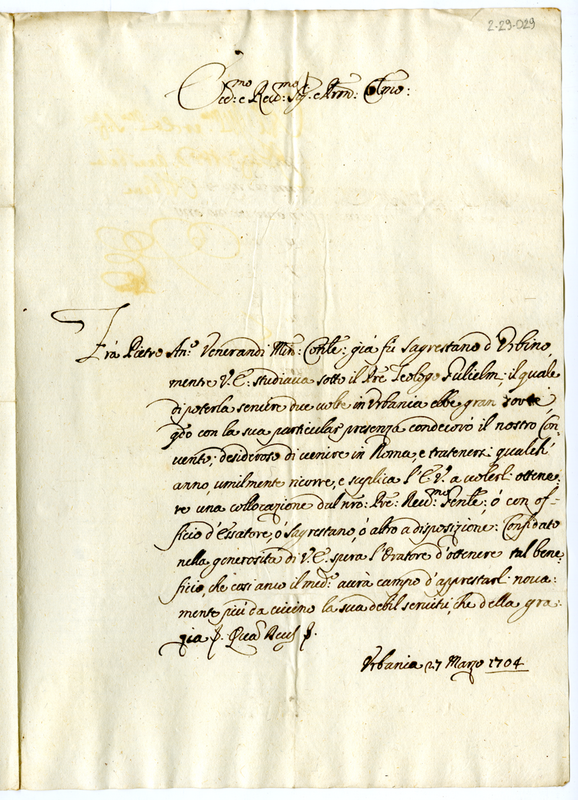 2-29-029
Em̃o e Red.mo Sig.r e Pron: Colmo:
Frà Pietro Ant.o Venerandi Min: Cõnle: già fù Sagrestano d'Urbino
mentre V.E. studiava sotto il Pre Teologo Gulielm; il quale
di poterla servire due volte in Urbania ebbe gran sorte
q̃do con la sua particular presenza condecorò il nostro Con
vento; desideroso di venire in Roma, e tratenersi qualch'
anno, umilmente ricorre, e suplica l'E.V. a volerl: ottene:
re una collocazione dal nro: Pre: Rev.mo Gẽnle; ò con of-
ficio d'Essatore, ò Sagrestano, ò altro a disposizione: Confidato
nella generosità di V.E. spera l'Oratore d'ottenere tal bene:
ficio, che così anco il med.o avrà campo d'apprestarl: nova:
mente più da vicino la sua debil servitù, che della gra:
zia p. Quã Deus p.
Urbania 27 Marzo 1704